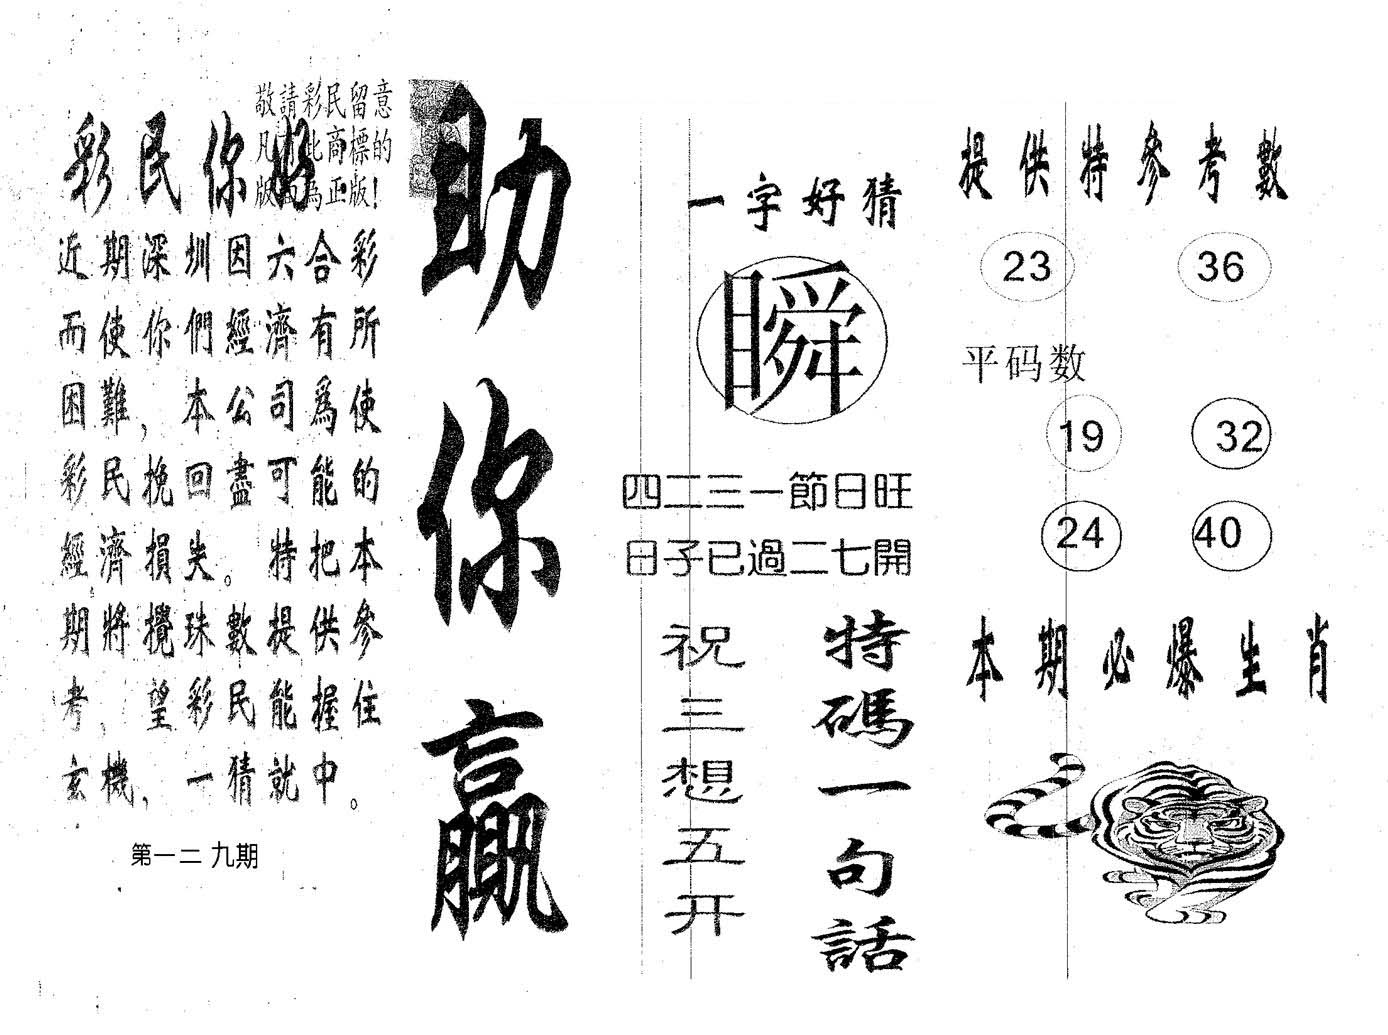 敬請彩民留意
凡有此商標的
版面為正版！
彩民你好
近期深圳因六合彩
而使你們經濟有所
困難，本公司爲使
彩民挽回盡可能的
經濟損失。特把本
期將攪珠數提供參
考，望彩民能握住
玄機，一猜就中。
第一二九期
助你贏
一字好猜
瞬
四二三一節日旺
日子已過二七開
特碼一句話
祝三想五开
提供特參考數
23 36
平码数
19 32
24 40
本期必爆生肖